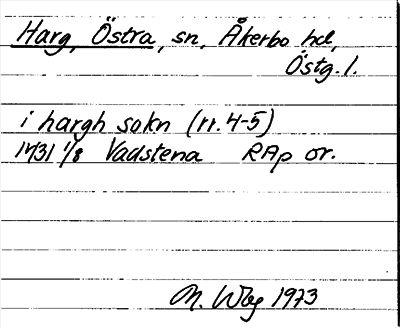 Harg, Östra, sn, Åkerbo hd,
Östg. l.
i hargh sokn (rr. 4-5)
1431 1/8 Vadstena RAp or.
M. Wbg 1973